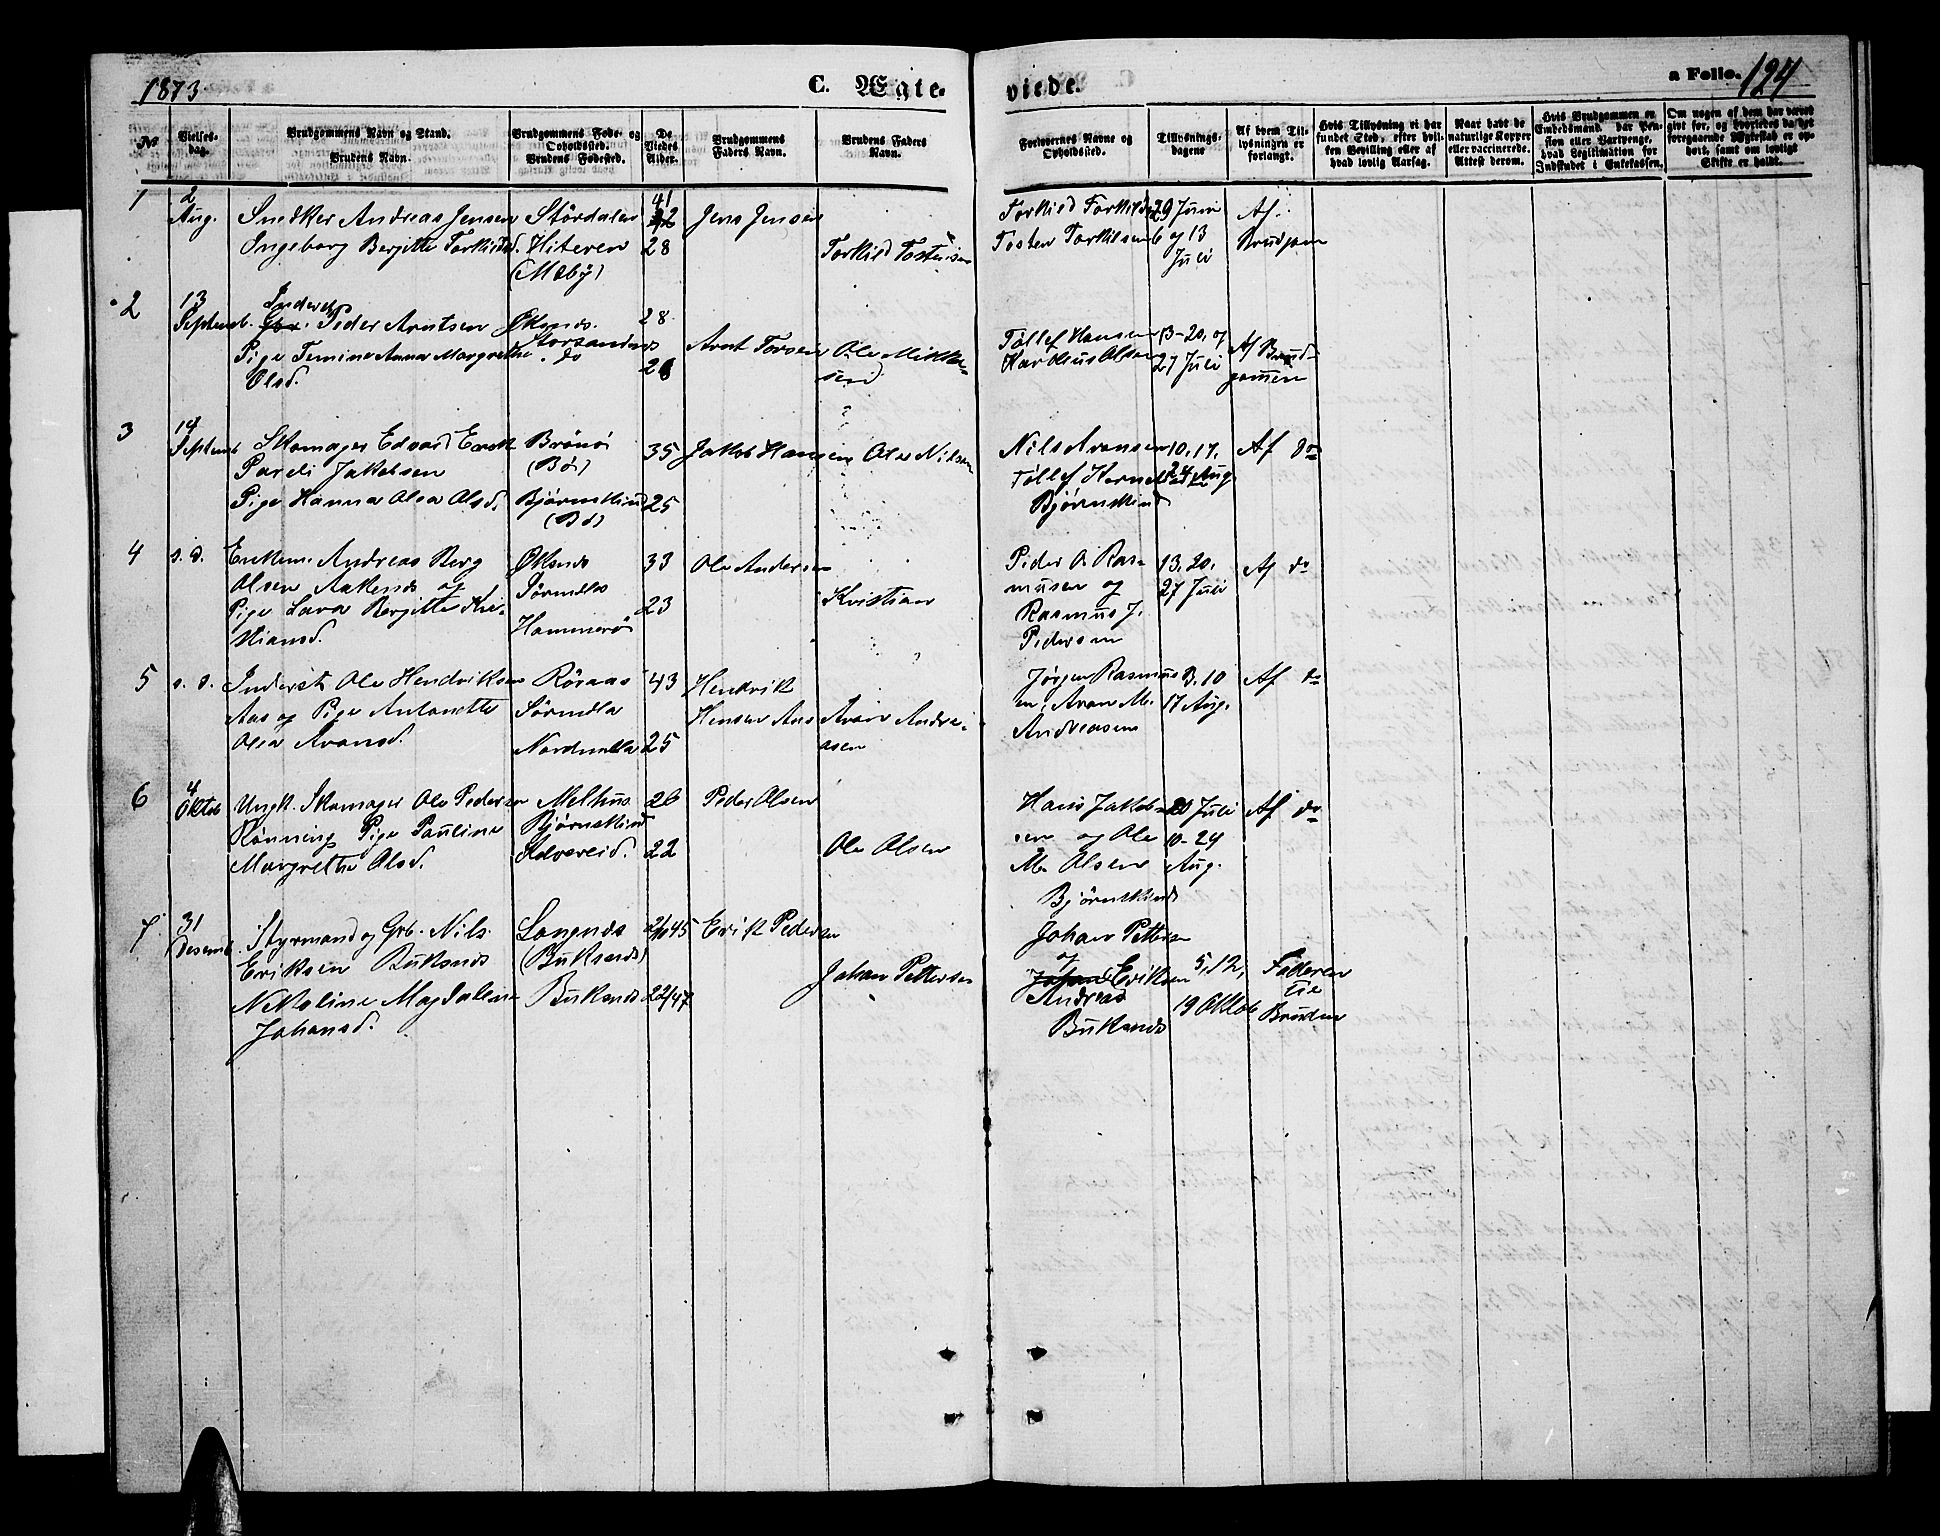 1873
C. Ægte-
viede.
a Folio. 124
No
Vielses-
dag.
Brudgommens Navn og Stand.
Brudens Navn.
Brudgommens Føde- og
Opholdssted.
Brudens Fødested.
De
Viedes
Alder.
Brudgommens
Faders Navn.
Brudens Faders
Navn.
Forlovernes Navne og
Opholdssted.
Tillysnings-
dagene
Af hvem Til-
lysningen er
forlangt.
Hvis Tillysning ei har
fundet Sted, efter hvil-
ken Bevilling eller af
hvad lovlig Aarsag.
Naar havt de
naturlige Kopper
eller vaccinerede.
Attest derom.
Hvis Brudgommen er
Embedsmand, bør Pen-
sion eller Vartpenge,
hvad Legitimation for
Indskudet i Enkekassen.
Om nogen af dem har været
gift før, og hvorledes da det
foregaaende Ægteskab er op-
hørt, samt om lovligt
Skifte er holdt.
1
2
Aug.
Snedker Andreas Jensen
Ingeborg Bergitte Torkilsd.
Stördalen
Hiteren
(Mæby)
41
28
Jens Jensen
Torkild Tostensen
Torkild Torkilds.
Tosten Torkilsen
29 Juni
6 og 13
Juli
Af
Brudgom
2
13
Septemb.
Inderst
Peder Arntsen
Pige Temine Anna Margrethe
Olsd.
Øksnes.
Storsandnes
do
28
Arnt Torsen
Ole Mikkel-
sen
Tollef Hansen
Hartvius Olsen
13-20, og
27 Juli
Af Brud-
gommen
3
14
Septemb
Skomager Edvard Enok
Pareli Jakobsen
Pige Hanna Olea Olsd.
Brönö
(Bö)
Bjørnskind
(Bö)
35
25
Jakob Hansen
Ole Nilsen
Nils Aronsen
Tollef
Bjørnskind
10, 17,
24 Aug.
Af do
4
s. d.
Enkem. Andreas Berg
Olsen Aakenes og
Pige Lava Bergitte Kri-
stiansd.
Øksnes
Sørmela
Hammerö
33
23
Ole Andersen
Kristian
Peder O. Ras-
musen og
Rasmus J.
Pedersen
13, 20,
27 Juli
Af do
5
s. d.
Inderst Ole Hendriksen
Aas og Pige Antonette
Olea Aronsd.
Röraas
Sörmela
Nordmela
43
25
Hendrik
Hansen Aas
Aron Andre-
asen
Jørgen Rasmus-
en, Aron M.
Andreasen
3, 10
17 Aug.
Af do
6
4
Oktob
Ungk. Skomager Ole Pedersen
Rønning Pige Pauline
Margrethe Olsd.
Melhus
Bjørnskind
26
22
Peder Olsen
Ole Olsen
Hans Jakob-
sen og Ole
M. Olsen
Bjørnskind
20 Juli
10-24
Aug.
Af do
7
31
Desemb.
Styrmand og Grb. Nils
Eriksen Buksnes
Nikoline Magdalene
Johansd.
Langnes
(Buksnes)
Buksnes
45
22/47
Erik Pedersen
Johan Pettersen
Johan Pettersen
og
Eriksen
Andreas
Buksnes
5, 12,
19 Oktob
Faderen
til
Bruden